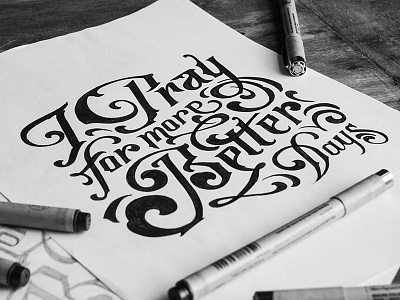 I Pray
for more
Better
Days